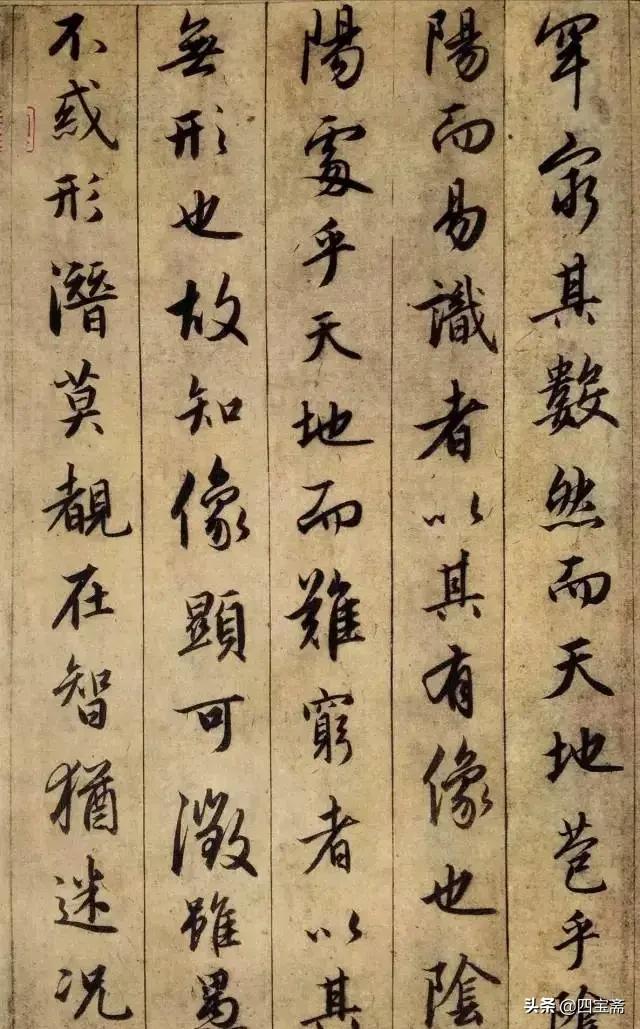 罕窮其數然而天地苞乎陰
陽而易識者以其有像也陰
陽處乎天地而難窮者以其
無形也故知像顯可徵雖愚
不惑形潛莫覩在智猶迷況
头条 @四宝斋